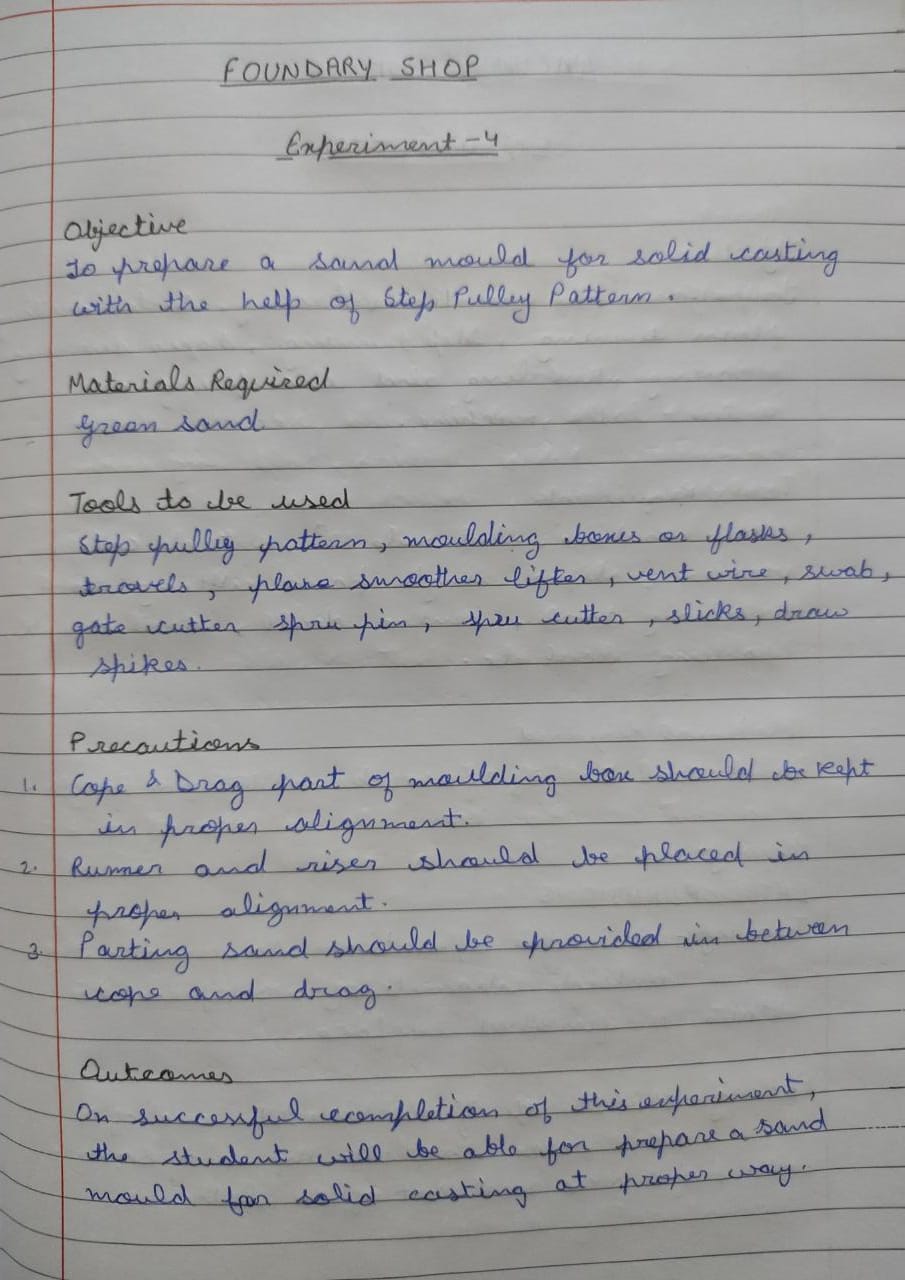 FOUNDARY SHOP
Experiment - 4
Objective
To prepare a sand mould for solid casting
with the help of Step Pulley Pattern.
Materials Required
green sand
Tools to be used
Step pulley pattern, moulding boxes or flasks,
trowels, plane smoother lifter, vent wire, swab,
gate cutter spru pin, spru cutter, slicks, draw
spikes.
Precautions
1. Cope & Drag part of moulding box should be kept
in proper alignment.
2. Runner and riser should be placed in
proper alignment.
3. Parting sand should be provided in between
cope and drag.
Outcomes
On successful completion of this experiment,
the student will be able for prepare a sand
mould for solid casting at proper way.